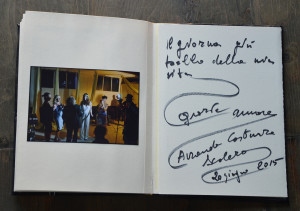 Il giorno più
bello della mia
vita
questo amore
Armando Costanza
20 giugno 2015